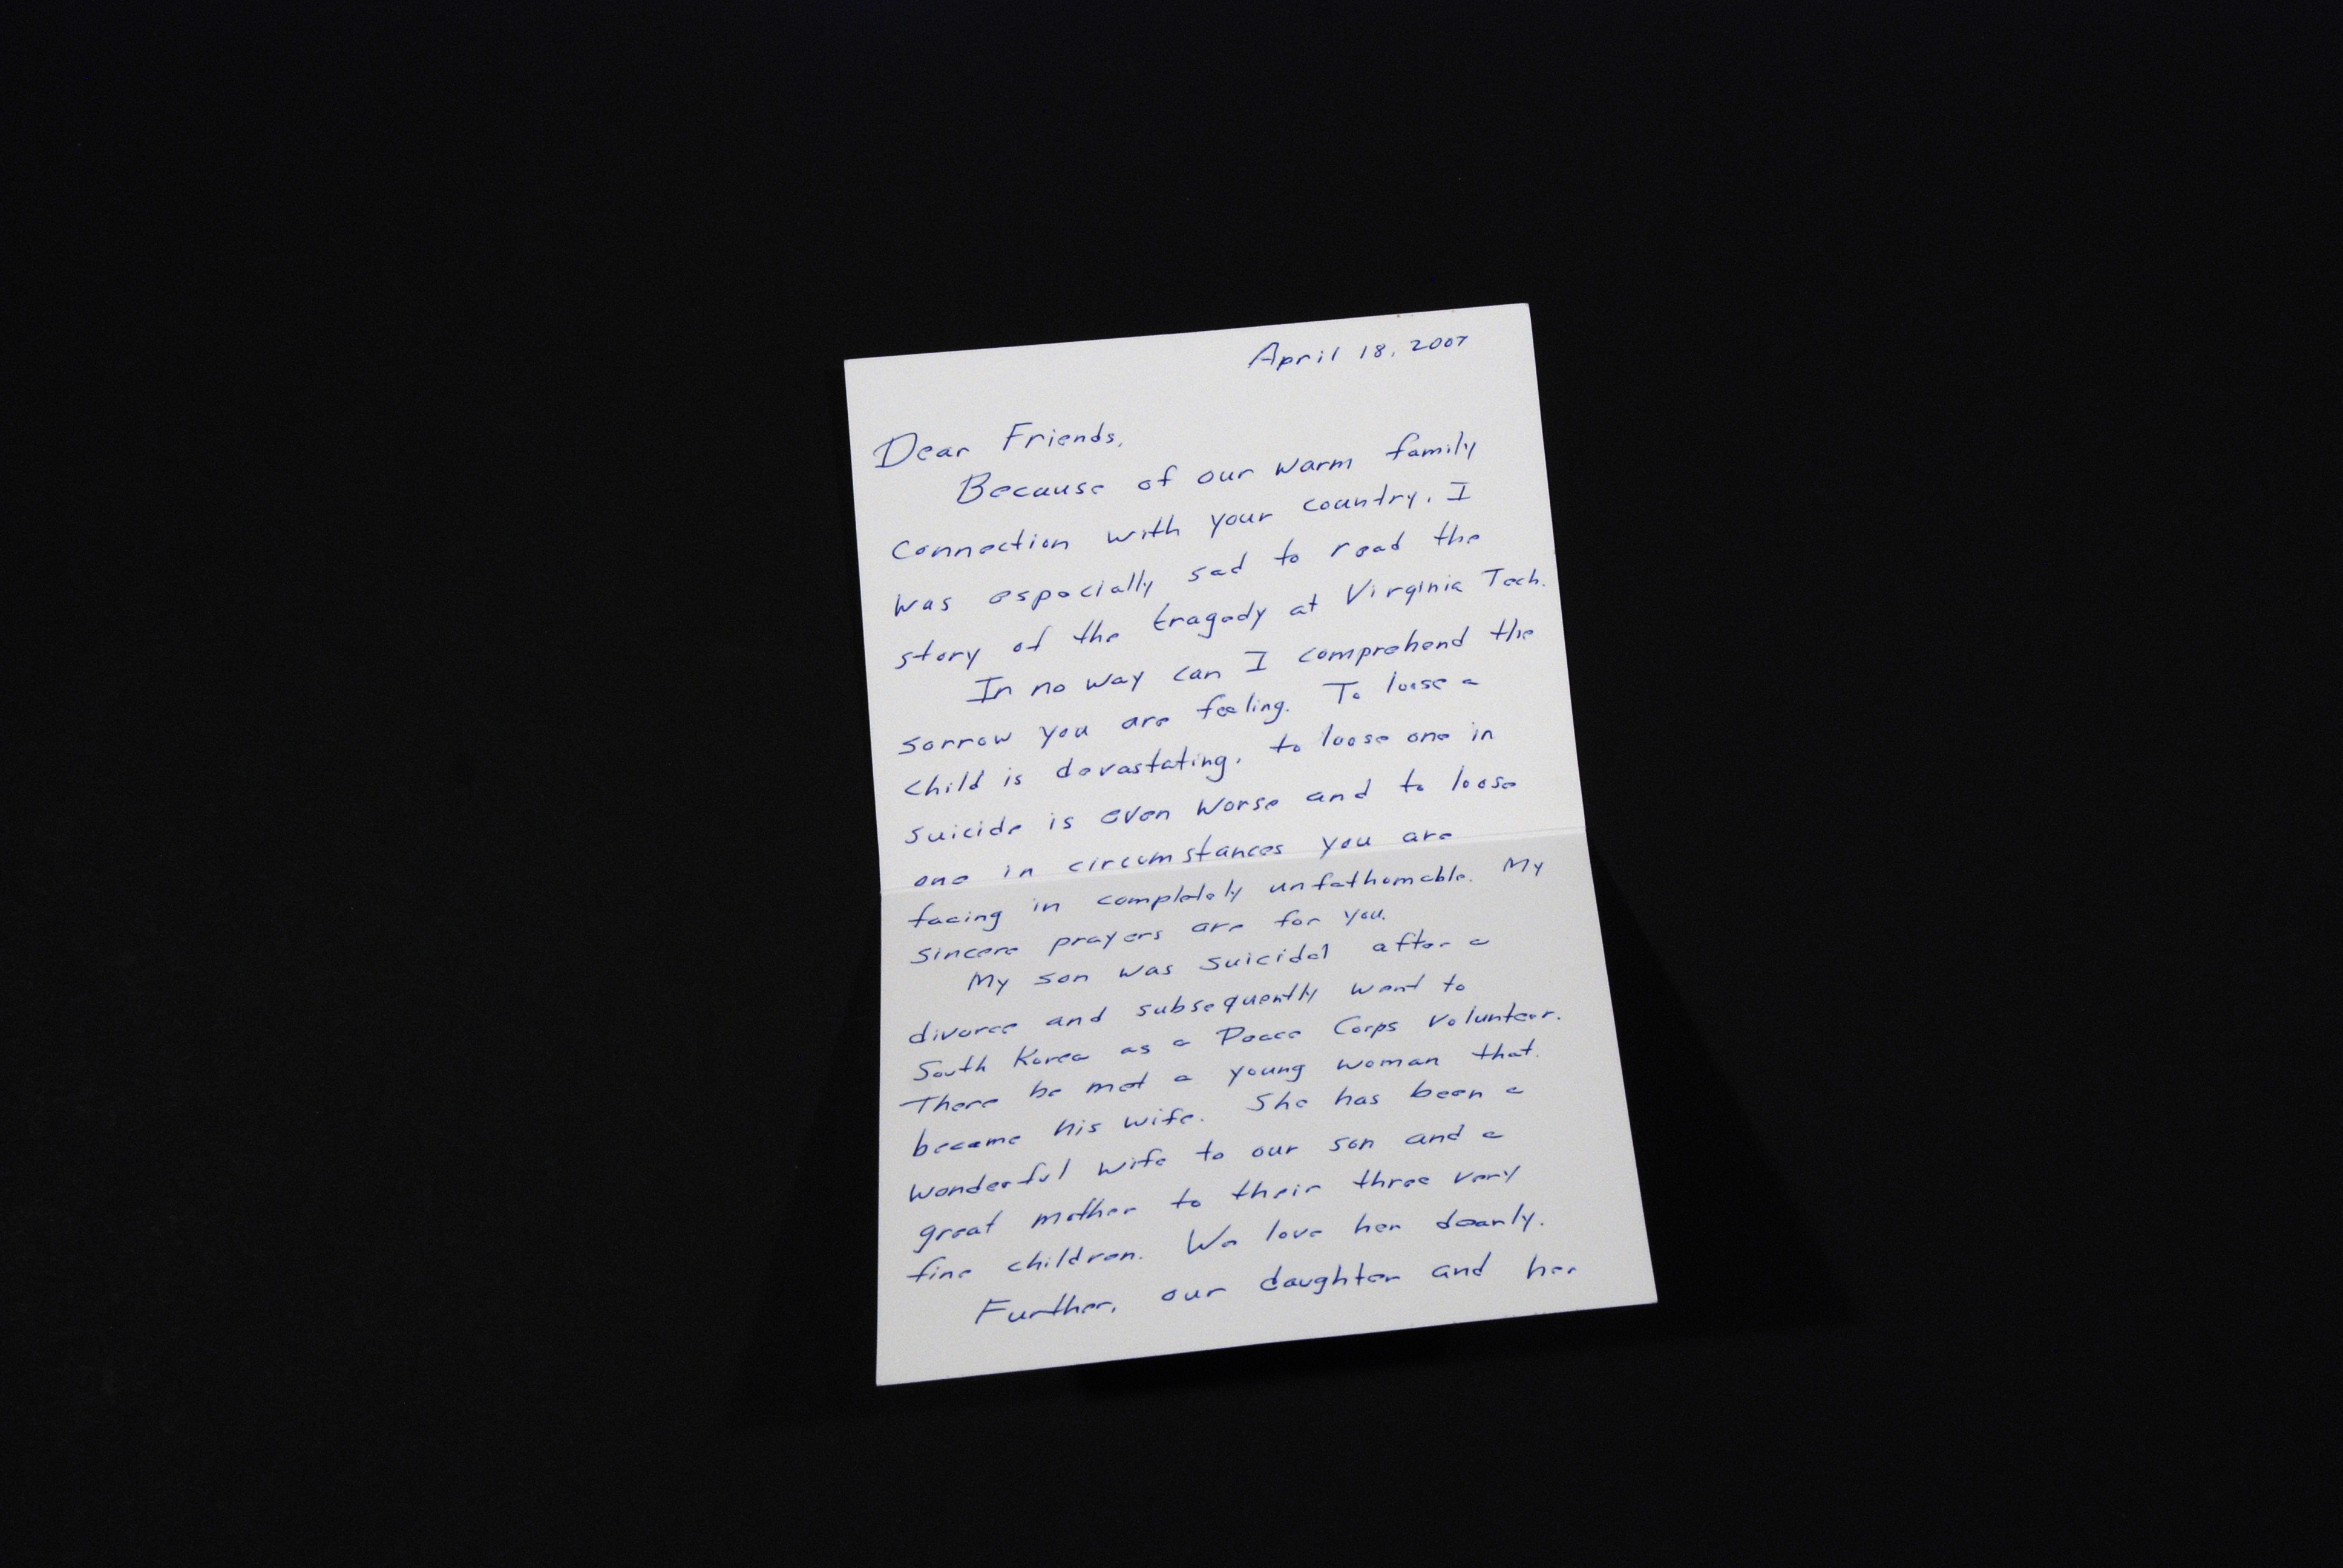 April 18, 2007
Dear Friends,
Because of our warm family
connection with your country, I
was especially sad to read the
story of the tragedy at Virginia Tech.
In no way can I comprehend the
sorrow you are feeling. To loose a
child is devastating, to loose one in
suicide is even worse and to loose
one in circumstances you are
facing in completely unfathomable. My
sincere prayers are for you.
My son was suicidal after a
divorce and subsequently went to
South Korea as a Peace Corps volunteer.
There he met a young woman that
became his wife. She has been a
wonderful wife to our son and a
great mother to their three very
fine children. We love her dearly.
Further, our daughter and her